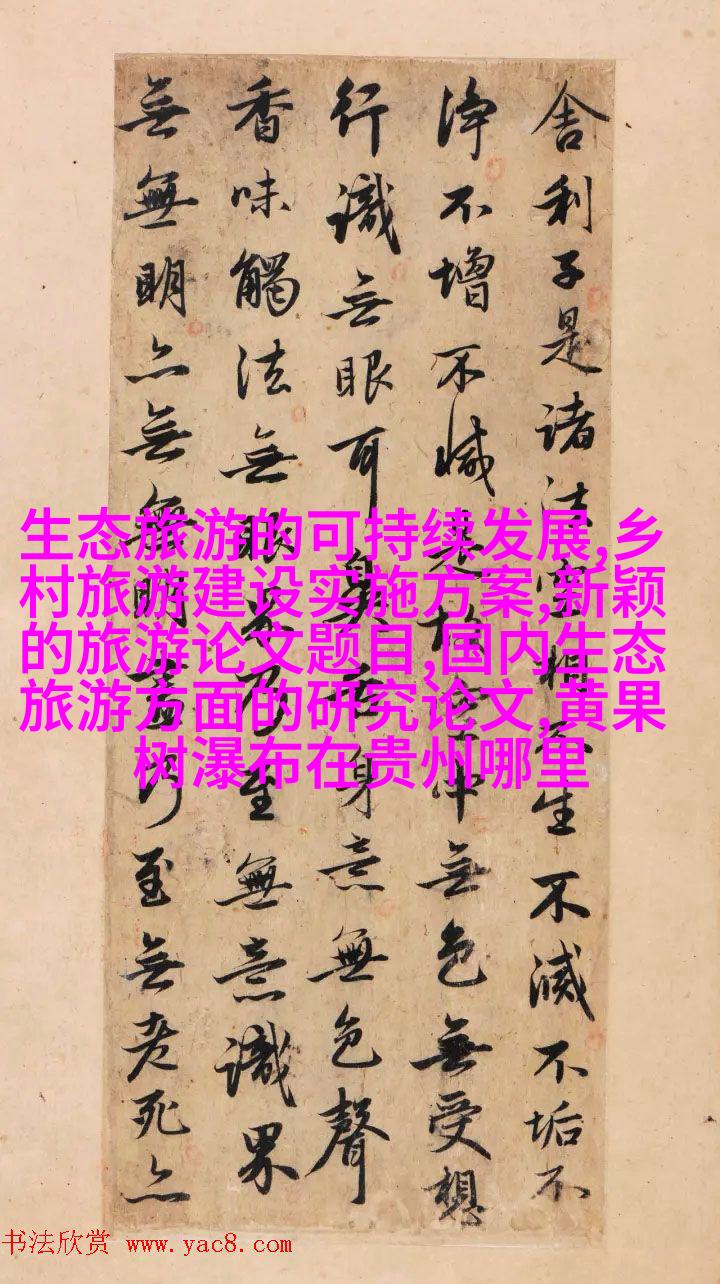 舍利子是諸法空相不生不滅不垢不
淨不增不減是故空中無色無受想
行識無眼耳鼻舌身意無色聲
香味觸法無眼界乃至無意識界
無無明亦無無明盡乃至無老死亦
生态旅游的可持续发展,乡
村旅游建设实施方案,新颖
的旅游论文题目,国内生态
旅游方面的研究论文,黄果
树瀑布在贵州哪里
书法欣赏 www.yac8.com